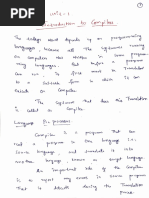 Unit - 1
Introduction to Compiler.
The software world depends up on programming
languages because all the softwares running
on computers was written in some program-
ming language. But before a program
can run it first must be
into a form which it can
execute on computer.
The software that does this translation
is called as compiler.
Language Processors
Compiler is a program that can
read a program in one language
source language and translate it into
another language known as target language.
An important role of the compiler
is to report any errors in source program
that is detects during the translation
process.